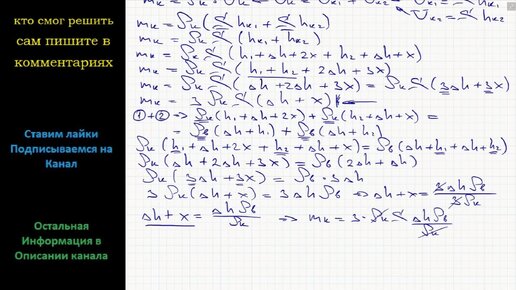 кто смог решить
сам пишите в
комментариях
Ставим лайки
Подписываемся на
Канал
Остальная
Информация в
Описании канала
mк = ρк(S hк1 + S hк2)
mк = ρк S (hк1 + hк2)
mк = ρк S (h1 + Δh + 2x + h2 + Δh + x)
mк = ρк S (h1 + h2 + 2Δh + 3x)
mк = ρк S (Δh + 2Δh + 3x) = ρк S (3Δh + 3x)
mк = 3 ρк S (Δh + x)
①+② => ρк(h1 + Δh + 2x) + ρк(h2 + Δh + x) =
= ρв(Δh + h1) + ρв(Δh + h2)
ρк(h1 + Δh + 2x + h2 + Δh + x) = ρв(Δh + h1 + Δh + h2)
ρк(Δh + 2Δh + 3x) = ρв(2Δh + Δh)
ρк(3Δh + 3x) = ρв · 3Δh
3 ρк(Δh + x) = 3Δh ρв <=> Δh + x = 3Δh ρв / 3ρк
Δh + x = Δh ρв / ρк => mк = 3 · ρк S Δh ρв / ρк